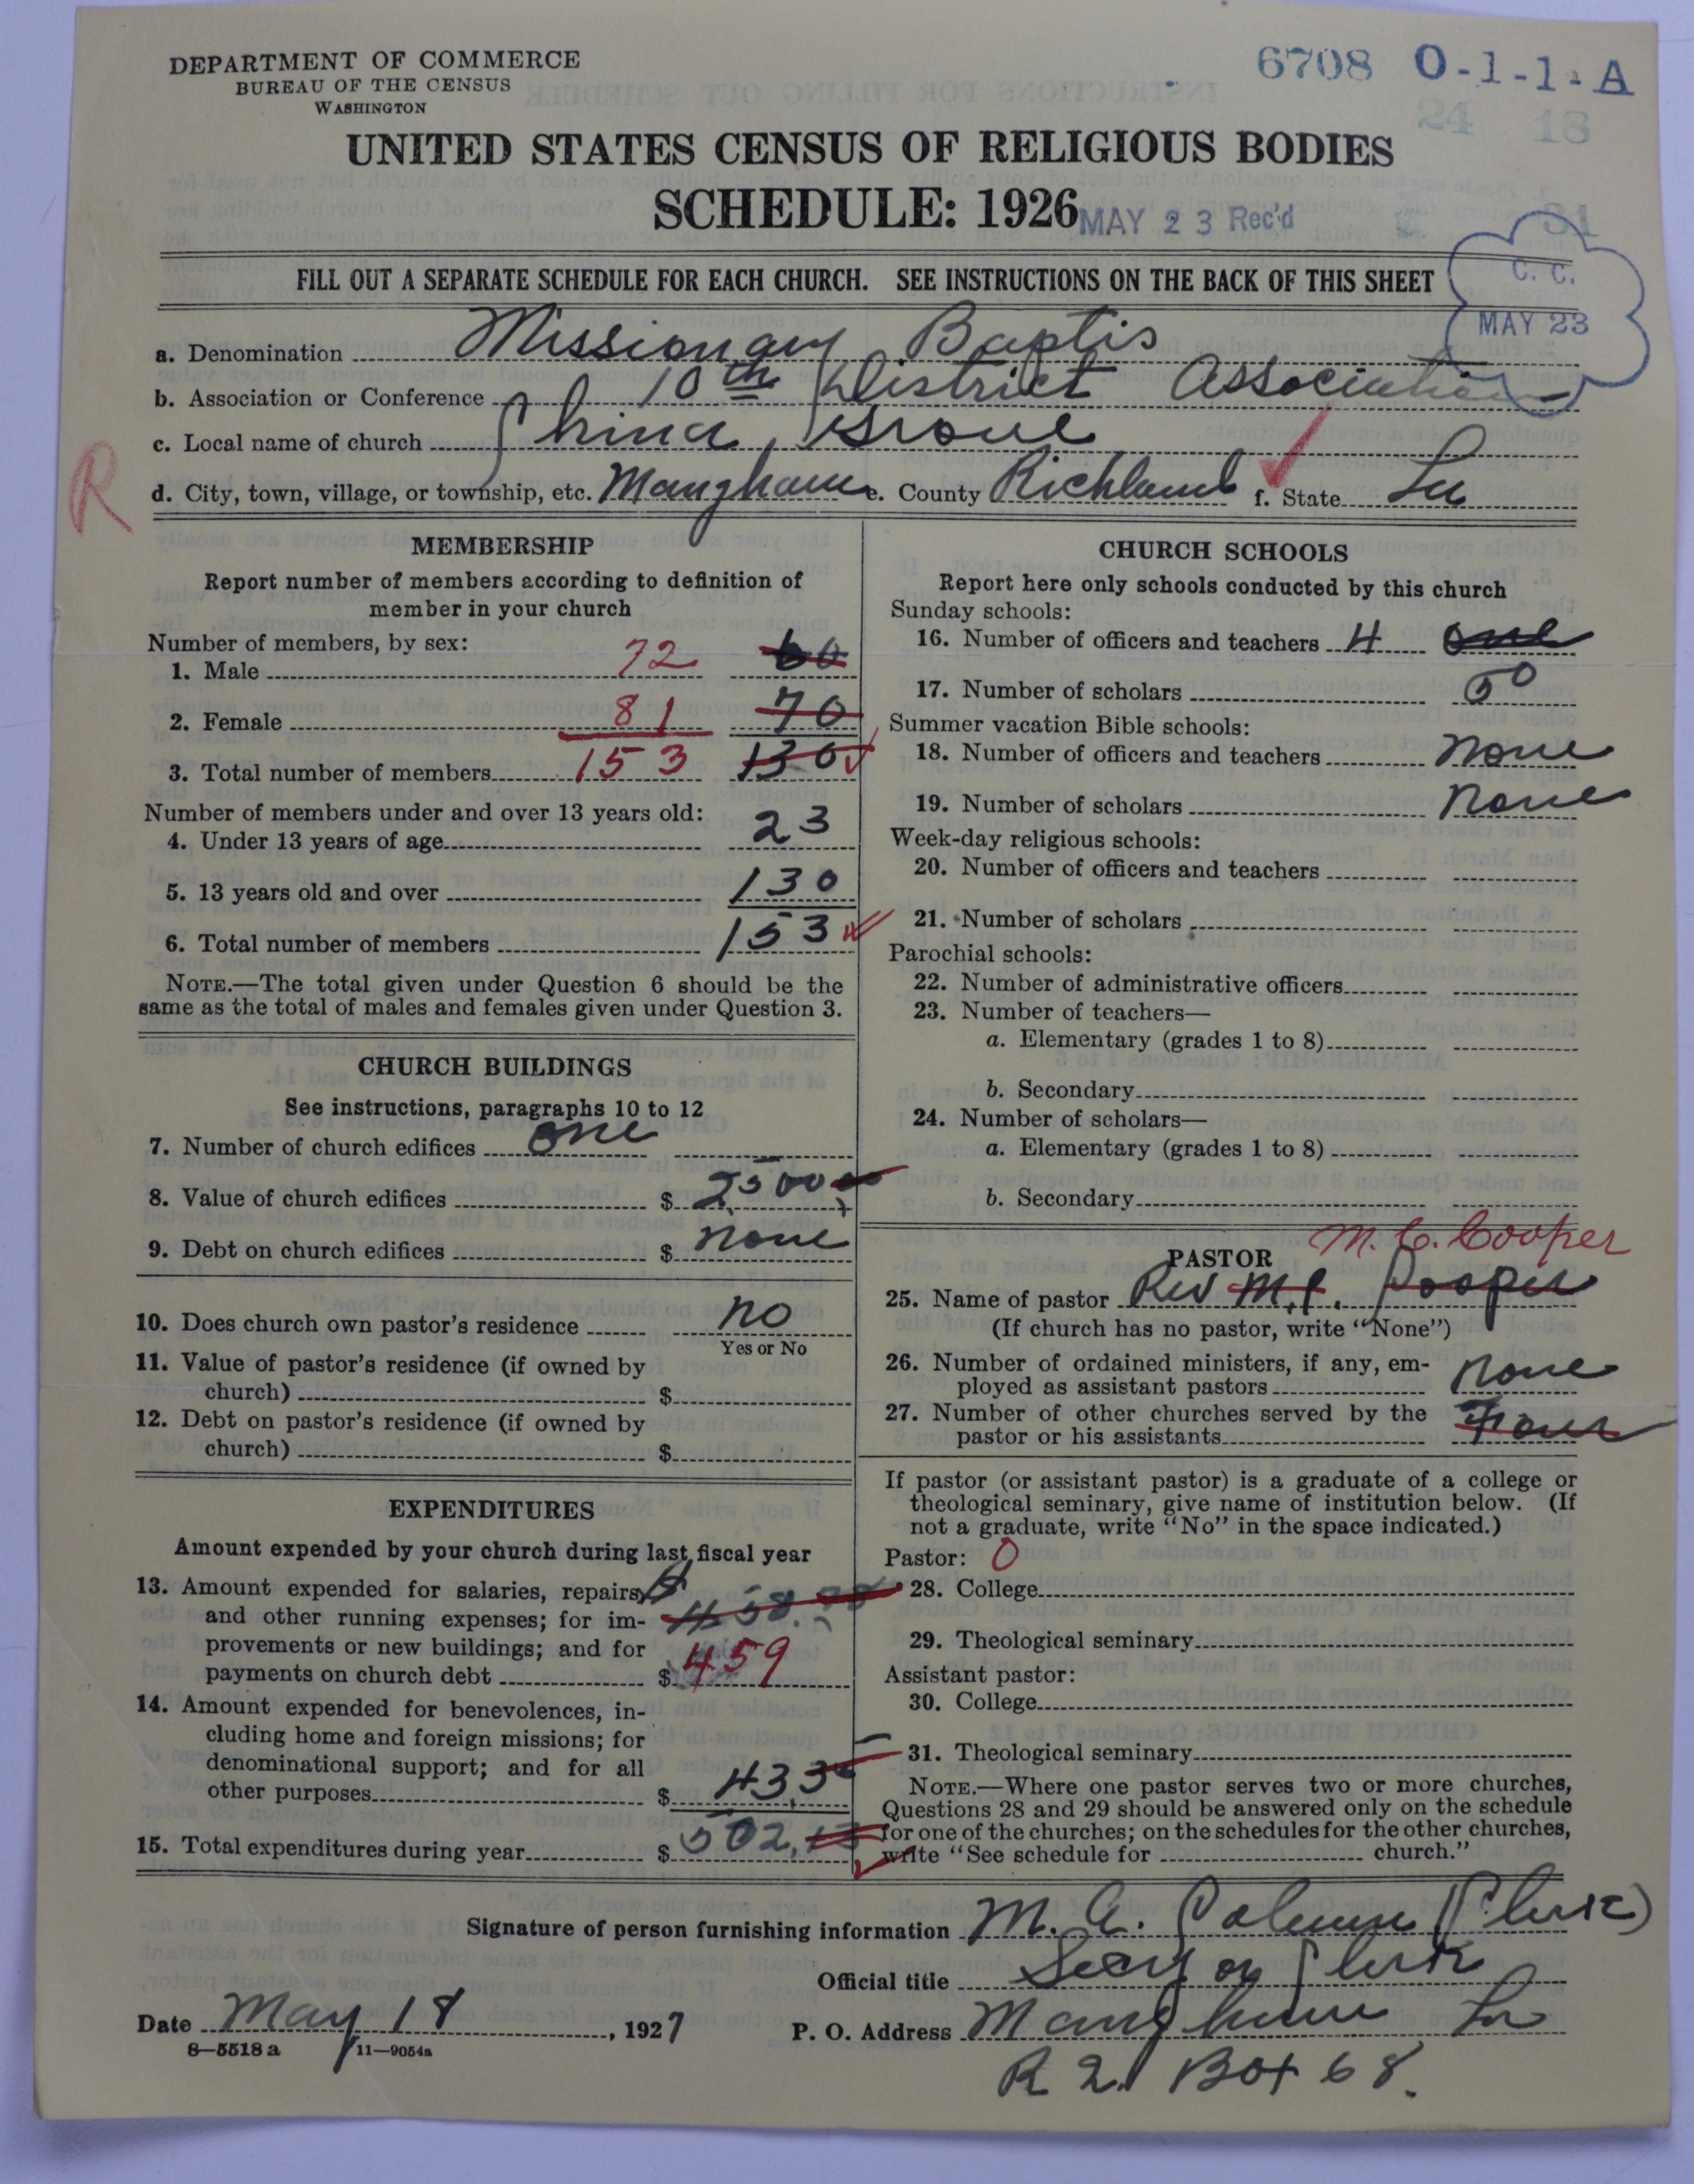 DEPARTMENT OF COMMERCE
BUREAU OF THE CENSUS
WASHINGTON
6708 0-1-1-A
24 18
UNITED STATES CENSUS OF RELIGIOUS BODIES
SCHEDULE: 1926
MAY 23 Rec'd
31
FILL OUT A SEPARATE SCHEDULE FOR EACH CHURCH. SEE INSTRUCTIONS ON THE BACK OF THIS SHEET
C. C.
MAY 23
a. Denomination Missionary Baptis
b. Association or Conference 10th District Association
c. Local name of church China Grove
R
d. City, town, village, or township, etc. Mangham e. County Richland f. State La
MEMBERSHIP
Report number of members according to definition of
member in your church
Number of members, by sex:
1. Male 72 60
2. Female 81 70
3. Total number of members 153 130
Number of members under and over 13 years old:
4. Under 13 years of age 23
5. 13 years old and over 130
6. Total number of members 153
NOTE.—The total given under Question 6 should be the
same as the total of males and females given under Question 3.
CHURCH BUILDINGS
See instructions, paragraphs 10 to 12
7. Number of church edifices one
8. Value of church edifices $ 2500
9. Debt on church edifices $ none
10. Does church own pastor's residence no
Yes or No
11. Value of pastor's residence (if owned by
church) $
12. Debt on pastor's residence (if owned by
church) $
EXPENDITURES
Amount expended by your church during last fiscal year
13. Amount expended for salaries, repairs,
and other running expenses; for im-
provements or new buildings; and for
payments on church debt $ 459
14. Amount expended for benevolences, in-
cluding home and foreign missions; for
denominational support; and for all
other purposes $ 43
15. Total expenditures during year $ 502
CHURCH SCHOOLS
Report here only schools conducted by this church
Sunday schools:
16. Number of officers and teachers 4 one
17. Number of scholars 50
Summer vacation Bible schools:
18. Number of officers and teachers none
19. Number of scholars none
Week-day religious schools:
20. Number of officers and teachers
21. Number of scholars
Parochial schools:
22. Number of administrative officers
23. Number of teachers—
a. Elementary (grades 1 to 8)
b. Secondary
24. Number of scholars—
a. Elementary (grades 1 to 8)
b. Secondary
PASTOR M. C. Cooper
25. Name of pastor Rev M. C. Cooper
(If church has no pastor, write "None")
26. Number of ordained ministers, if any, em-
ployed as assistant pastors none
27. Number of other churches served by the
pastor or his assistants Four
If pastor (or assistant pastor) is a graduate of a college or
theological seminary, give name of institution below. (If
not a graduate, write "No" in the space indicated.)
Pastor: 0
28. College
29. Theological seminary
Assistant pastor:
30. College
31. Theological seminary
NOTE.—Where one pastor serves two or more churches,
Questions 28 and 29 should be answered only on the schedule
for one of the churches; on the schedules for the other churches,
write "See schedule for church."
Signature of person furnishing information M. A. (Clerk)
Official title Secy or Clerk
Date May 18, 1927 P. O. Address Mangham La
8—5518 a 11—9054a
R 2 Box 68.